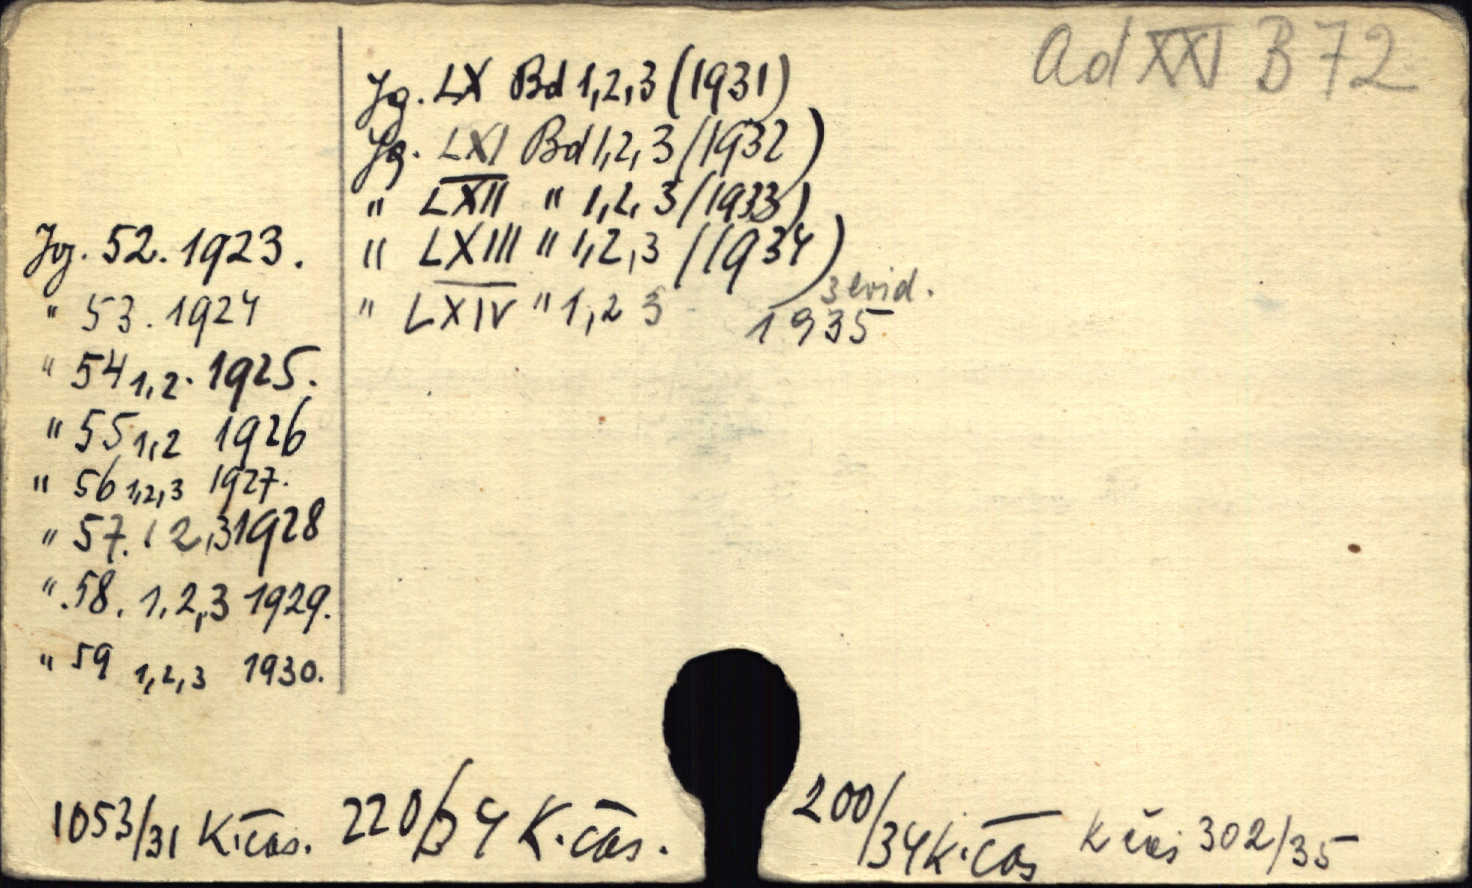 Ad XXI B 72
Jg. 52. 1923.
" 53. 1924
" 54 1,2. 1925.
" 55 1,2 1926
" 56 1,2,3 1927.
" 57. 1 2,3 1928
" 58. 1,2,3 1929.
" 59 1,2,3 1930.
Jg. LX Bd 1,2,3 (1931)
Jg. LXI Bd 1,2,3 (1932)
" LXII " 1,2,3 (1933)
" LXIII " 1,2,3 (1934)
3 evid.
" LXIV " 1,2 3 1935
1053/31 K.čas. 220/34 K.čas. 200/34 K.čas K čas 302/35